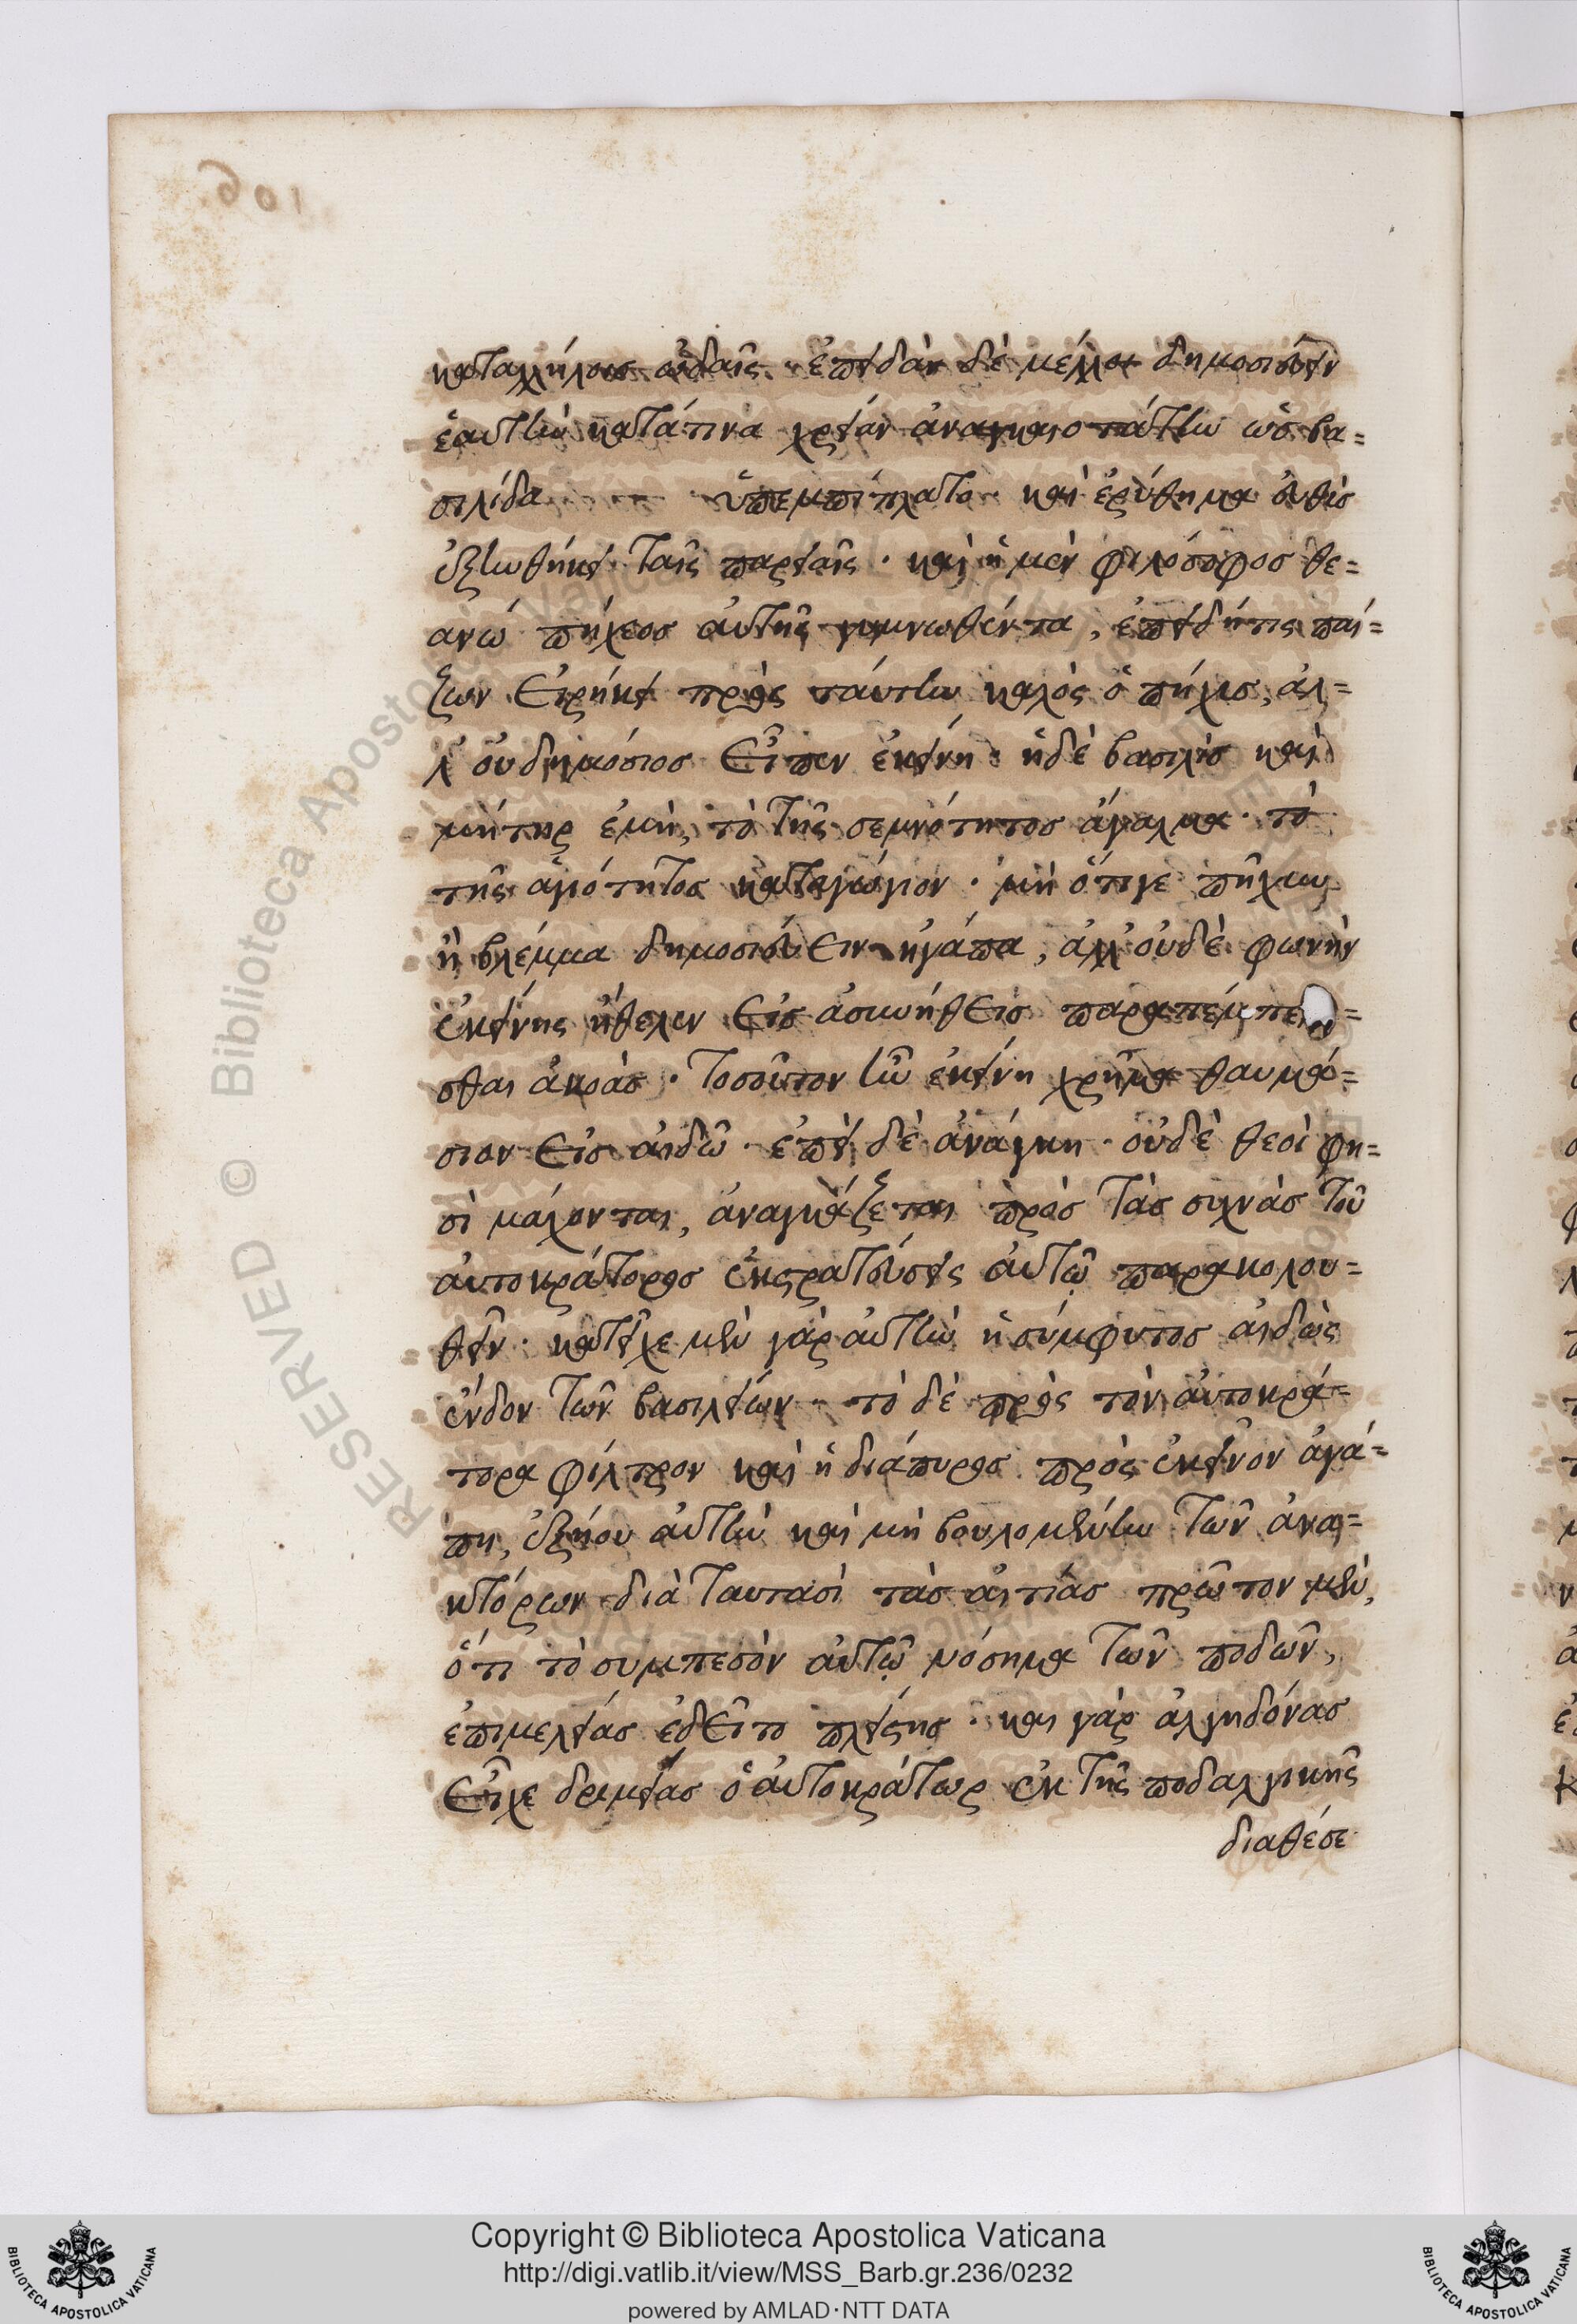 καταλλήλοις ᾠδαῖς· ἐπειδὰν δὲ μέλλοι δημοσιεύειν
ἑαυτὴν κατά τινα χρείαν ἀναγκαιοτάτην ὡς βα=
σιλίδα ὑπεμπίπλατο καὶ ἐρύθημα εὐθὺς
ἐξηνθήκει ταῖς παρειαῖς· καὶ ἡ μὲν φιλόσοφος θε=
ανώ πήχεος αὐτῆς γυμνωθέντα, ἐπειδή τις παί=
ζων εἰρήκει πρὸς ταύτην καλὸς ὁ πήχις, ἀλ=
λ' οὐ δημόσιος εἶπεν ἐκείνη· ἡ δὲ βασιλὶς καὶ
μήτηρ ἐμὴ, τὸ τῆς σεμνότητος ἄγαλμα· τὸ
τῆς ἁγιότητος καταγώγιον· μὴ ὅτι γε πῆχυν
ἢ βλέμμα δημοσιεύειν ἠγάπα, ἀλλ' οὐδὲ φωνὴν
ἐκείνης ἤθελεν εἰς ἀσυνήθεις παραπέμπε=
σθαι ἀκοάς· τοσοῦτον ἦν ἐκείνη χρῆμα θαυμά=
σιον εἰς αἰδῶ· ἐπεὶ δὲ ἀνάγκη· οὐδὲ θεοὶ φη=
σὶ μάχονται, ἀναγκάζεται πρὸς τὰς συχνὰς τοῦ
αὐτοκράτορος ἐκστρατεύσεις αὐτῷ παρακολου=
θεῖν· κατεῖχε μὲν γὰρ αὐτὴν ἡ σύμφυτος αἰδὼς
ἔνδον τῶν βασιλείων· τὸ δὲ πρὸς τὸν αὐτοκρά=
τορα φίλτρον καὶ ἡ διάπυρος πρὸς ἐκεῖνον ἀγά=
πη, ἐξῆγον αὐτὴν καὶ μὴ βουλομένην τῶν ἀνα=
κτόρων διὰ ταυτασὶ τὰς αἰτίας πρῶτον μὲν,
ὅτι τὸ συμπεσὸν αὐτῷ νόσημα τῶν ποδῶν,
ἐπιμελείας ἐδεῖτο πλείστης· καὶ γὰρ ἀλγηδόνας
εἶχε δριμείας ὁ αὐτοκράτωρ ἐκ τῆς ποδαλγικῆς
διαθέσε
Copyright © Biblioteca Apostolica Vaticana
http://digi.vatlib.it/view/MSS_Barb.gr.236/0232
powered by AMLAD·NTT DATA